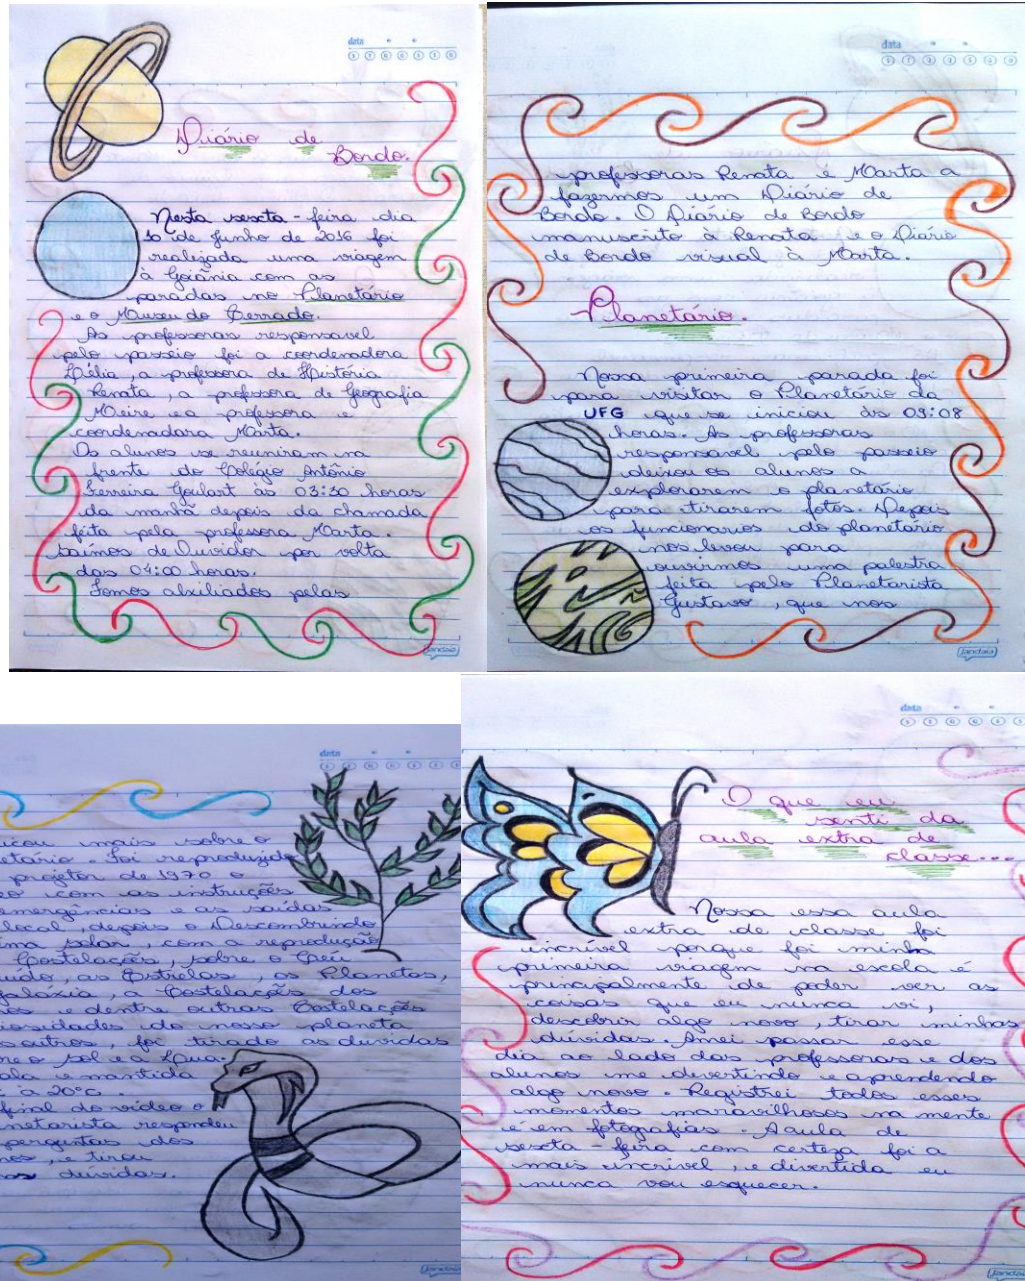 data
Diário de
Bordo.
Nesta sexta-feira dia
10 de Junho de 2016 foi
realizada uma viagem
à Goiânia com as
paradas no Planetário
e o Museu do Cerrado.
As professoras responsavel
pelo passeio foi a coordenadora
Célia, a professora de História
Renata, a professora de Geografia
Meire e a professora e
coordenadora Marta.
Os alunos se reuniram na
frente do Colégio Antônio
Ferreira Goulart às 03:30 horas
da manhã depois da chamada
feita pela professora Marta.
Saímos de Ouvidor por volta
das 04:00 horas.
Fomos alxiliados pelas
Jandaia
data
professoras Renata é Marta a
fazermos um Diário de
Bordo. O Diário de Bordo
manuscrito à Renata e o Diário
de Bordo visual à Marta.
Planetário.
Nossa primeira parada foi
para visitar o Planetário da
UFG que se iniciou às 09:08
horas. As professoras
responsavel pelo passeio
deixou os alunos a
explorarem o planetário
para tirarem fotos. Depois
os funcionarios do planetário
nos levou para
ouvirmos uma palestra
feita pelo Planetarista
Gustavo, que nos
Jandaia
data
mais sobre o
Foi reproduzido
projetor de 1970 o
com as instruções
emergências e as saídas
local, depois o Descombrindo
solar, com a reprodução
Costelações, sobre o Céu
as Estrelas, os Planetas,
galáxia, a Costelações dos
e dentre outras Costelações
do nosso planeta
outros, foi tirado as duvidas
o sol e a Lua.
e mantida
à 20°C.
final do vídeo o
respondeu
perguntas dos
e tirou
dúvidas.
Jandaia
data
O que eu
senti da
aula extra de
classe...
Nossa essa aula
extra de classe foi
incrível porque foi minha
primeira viagem na escola é
principalmente de poder ver as
coisas que eu nunca vi,
descobrir algo novo, tirar minhas
dúvidas. Amei passar esse
dia ao lado das professoras e dos
alunos me divertindo e aprendendo
algo novo. Registrei todos esses
momentos maravilhosos na mente
é em fotografias. A aula de
sexta-feira com certeza foi a
mais incrível, e divertida eu
nunca vou esquecer.